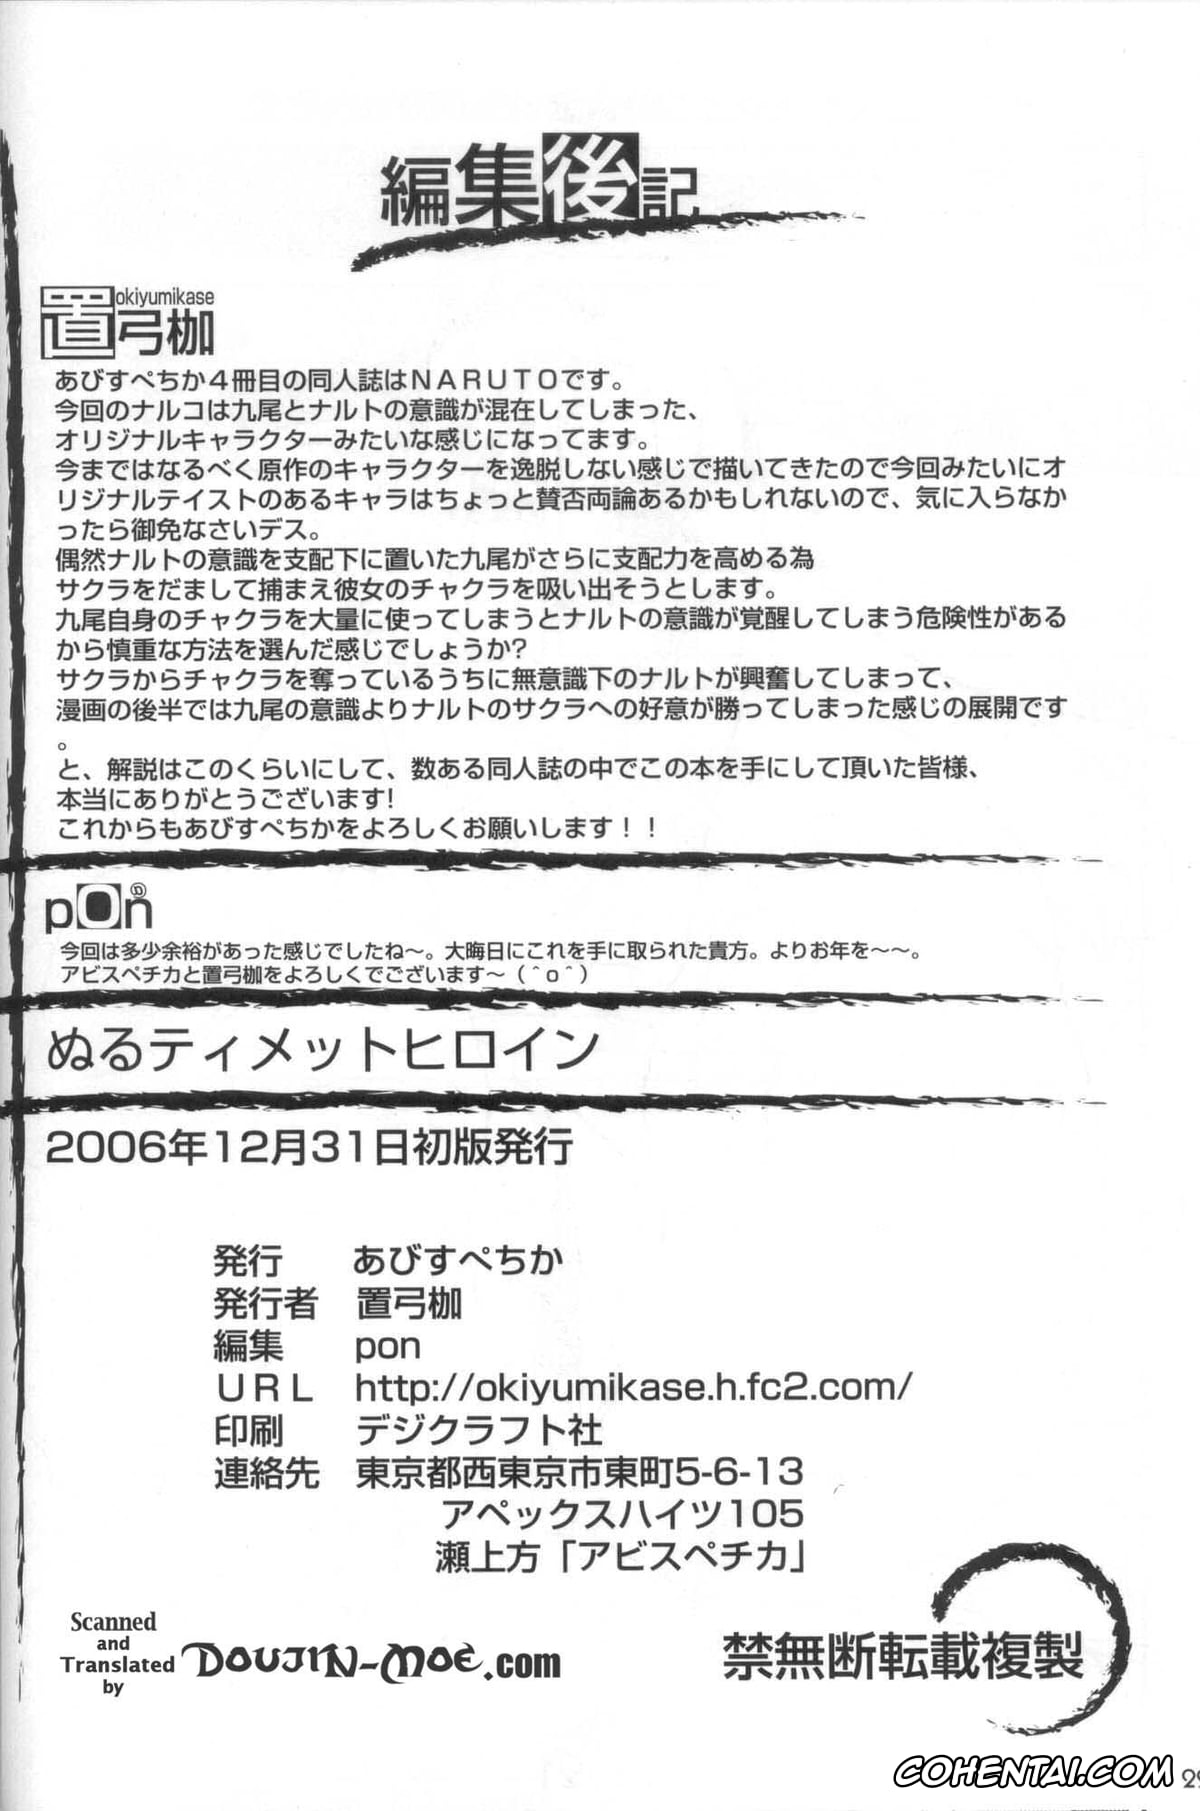 編集後記
okiyumikase
置弓枷
あびすぺちか４冊目の同人誌はＮＡＲＵＴＯです。
今回のナルコは九尾とナルトの意識が混在してしまった、
オリジナルキャラクターみたいな感じになってます。
今まではなるべく原作のキャラクターを逸脱しない感じで描いてきたので今回みたいにオ
リジナルテイストのあるキャラはちょっと賛否両論あるかもしれないので、気に入らなか
ったら御免なさいデス。
偶然ナルトの意識を支配下に置いた九尾がさらに支配力を高める為
サクラをだまして捕まえ彼女のチャクラを吸い出そうとします。
九尾自身のチャクラを大量に使ってしまうとナルトの意識が覚醒してしまう危険性がある
から慎重な方法を選んだ感じでしょうか?
サクラからチャクラを奪っているうちに無意識下のナルトが興奮してしまって、
漫画の後半では九尾の意識よりナルトのサクラへの好意が勝ってしまった感じの展開です
。
と、解説はこのくらいにして、数ある同人誌の中でこの本を手にして頂いた皆様、
本当にありがとうございます!
これからもあびすぺちかをよろしくお願いします！！
pon
今回は多少余裕があった感じでしたね〜。大晦日にこれを手に取られた貴方。よりお年を〜〜。
アビスペチカと置弓枷をよろしくでございます〜（＾ｏ＾）
ぬるティメットヒロイン
2006年12月31日初版発行
発行 あびすぺちか
発行者 置弓枷
編集 pon
ＵＲＬ http://okiyumikase.h.fc2.com/
印刷 デジクラフト社
連絡先 東京都西東京市東町5-6-13
アペックスハイツ105
瀬上方「アビスペチカ」
禁無断転載複製
Scanned
and
Translated
by
DOUJIN-MOE.com
COHENTAI.COM
29